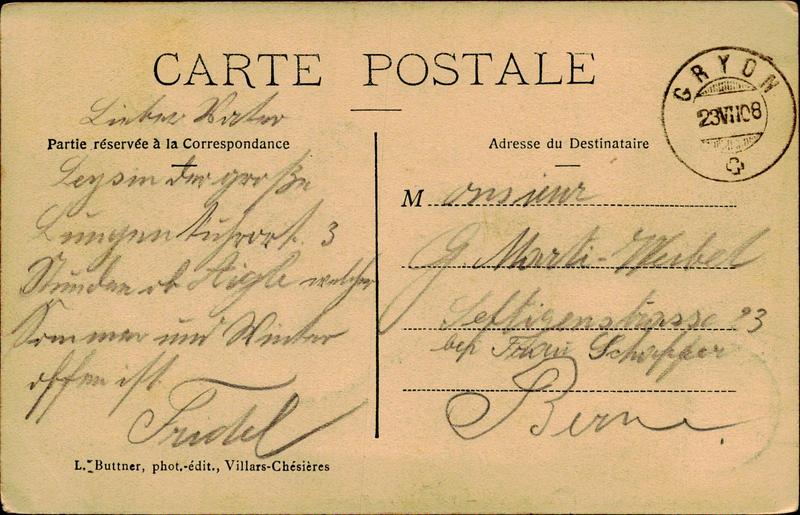 CARTE POSTALE
GRYON
23 VII 08
Lieber Vater
Partie réservée à la Correspondance
Leysin der große
Lungenkuhrort. 3
Stunden ob Aigle welcher
Sommer und Winter
offen ist.
Fridel
L. Buttner, phot.-édit., Villars-Chésières
Adresse du Destinataire
Monsieur
G. Marti-Weibel
Seftigenstrasse 23
bei Frau
Berne.